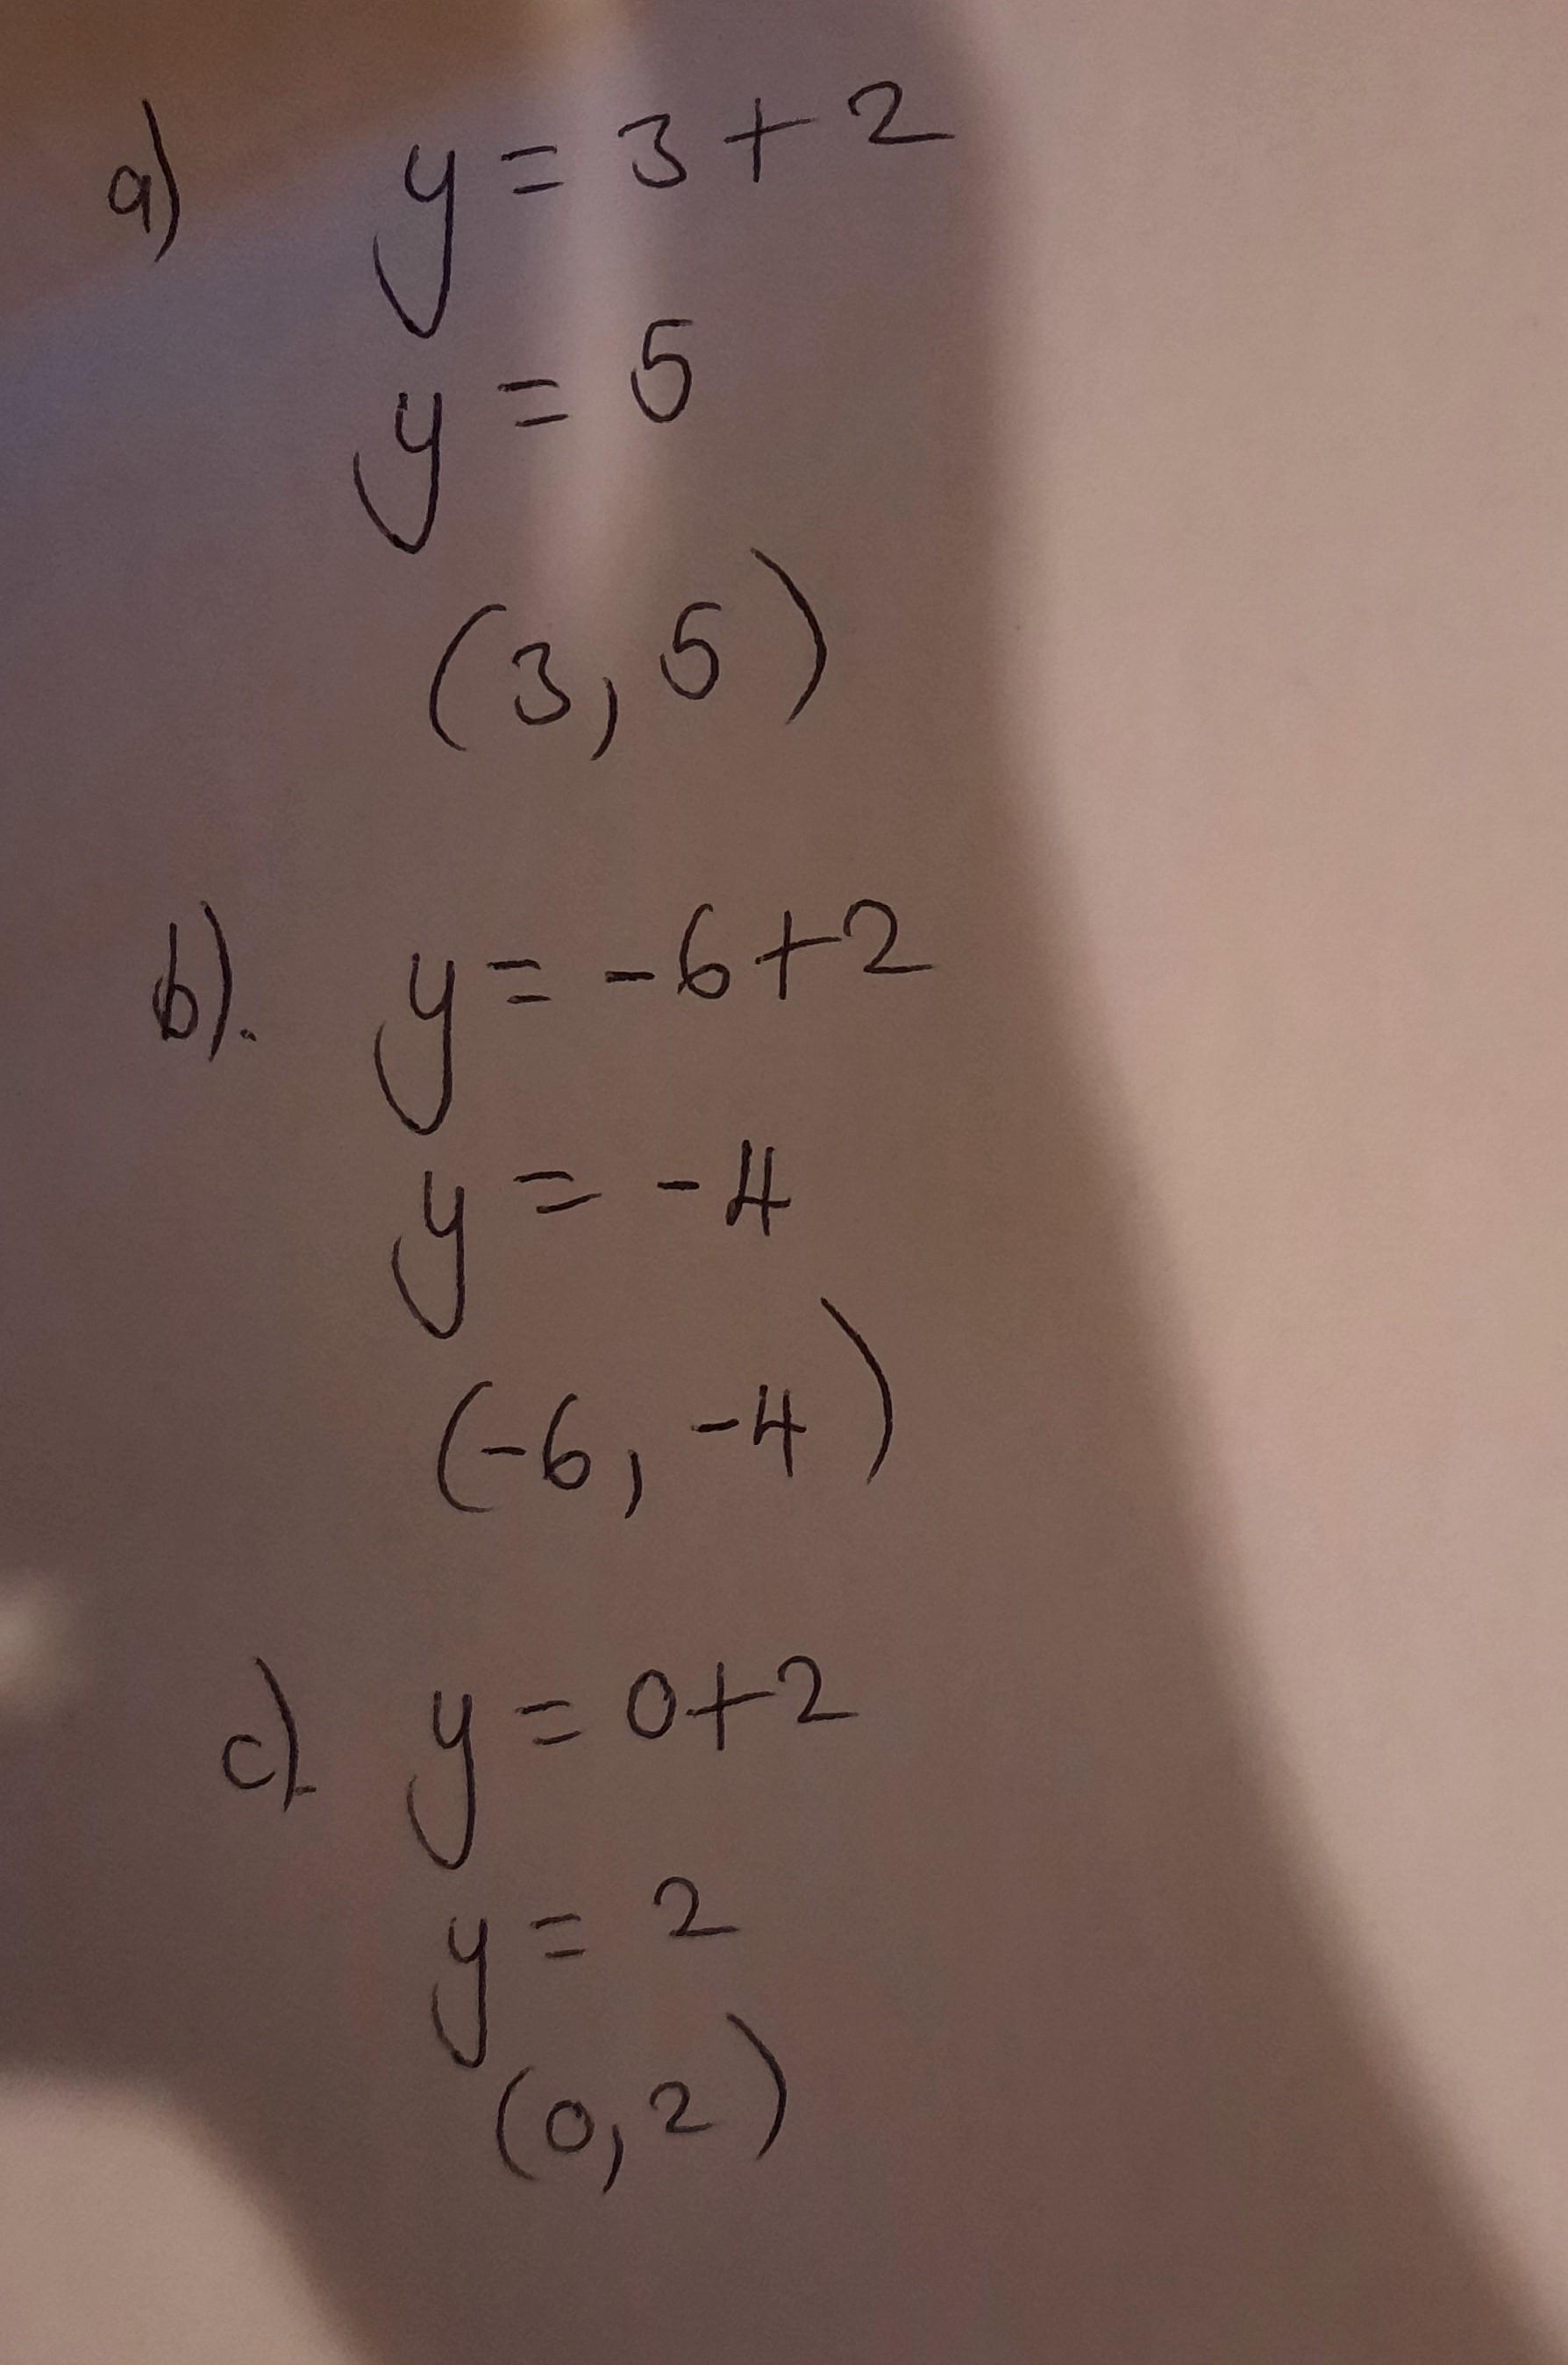 a) y = 3 + 2
y = 5
(3, 5)
b). y = -6+2
y = -4
(-6, -4)
c). y = 0+2
y = 2
(0, 2)